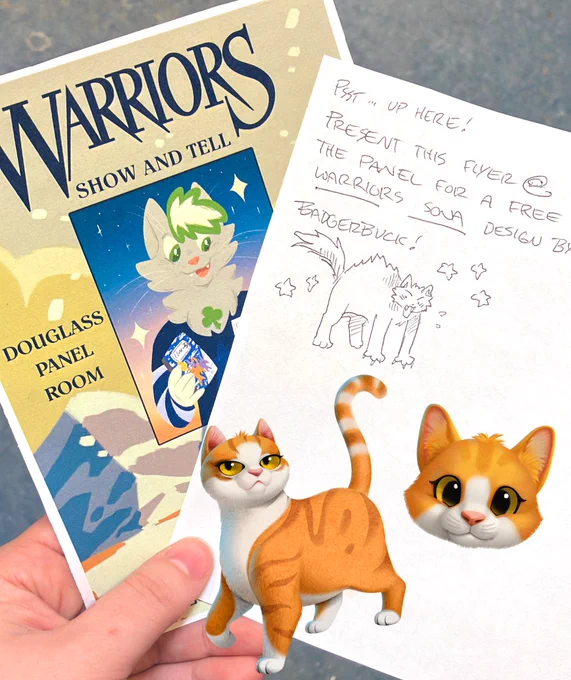 WARRIORS
SHOW AND TELL
DOUGLASS
PANEL
ROOM
PSST... UP HERE!
PRESENT THIS FLYER @
THE PANEL FOR A FREE
WARRIORS SONA DESIGN BY
BADGERBUCK!